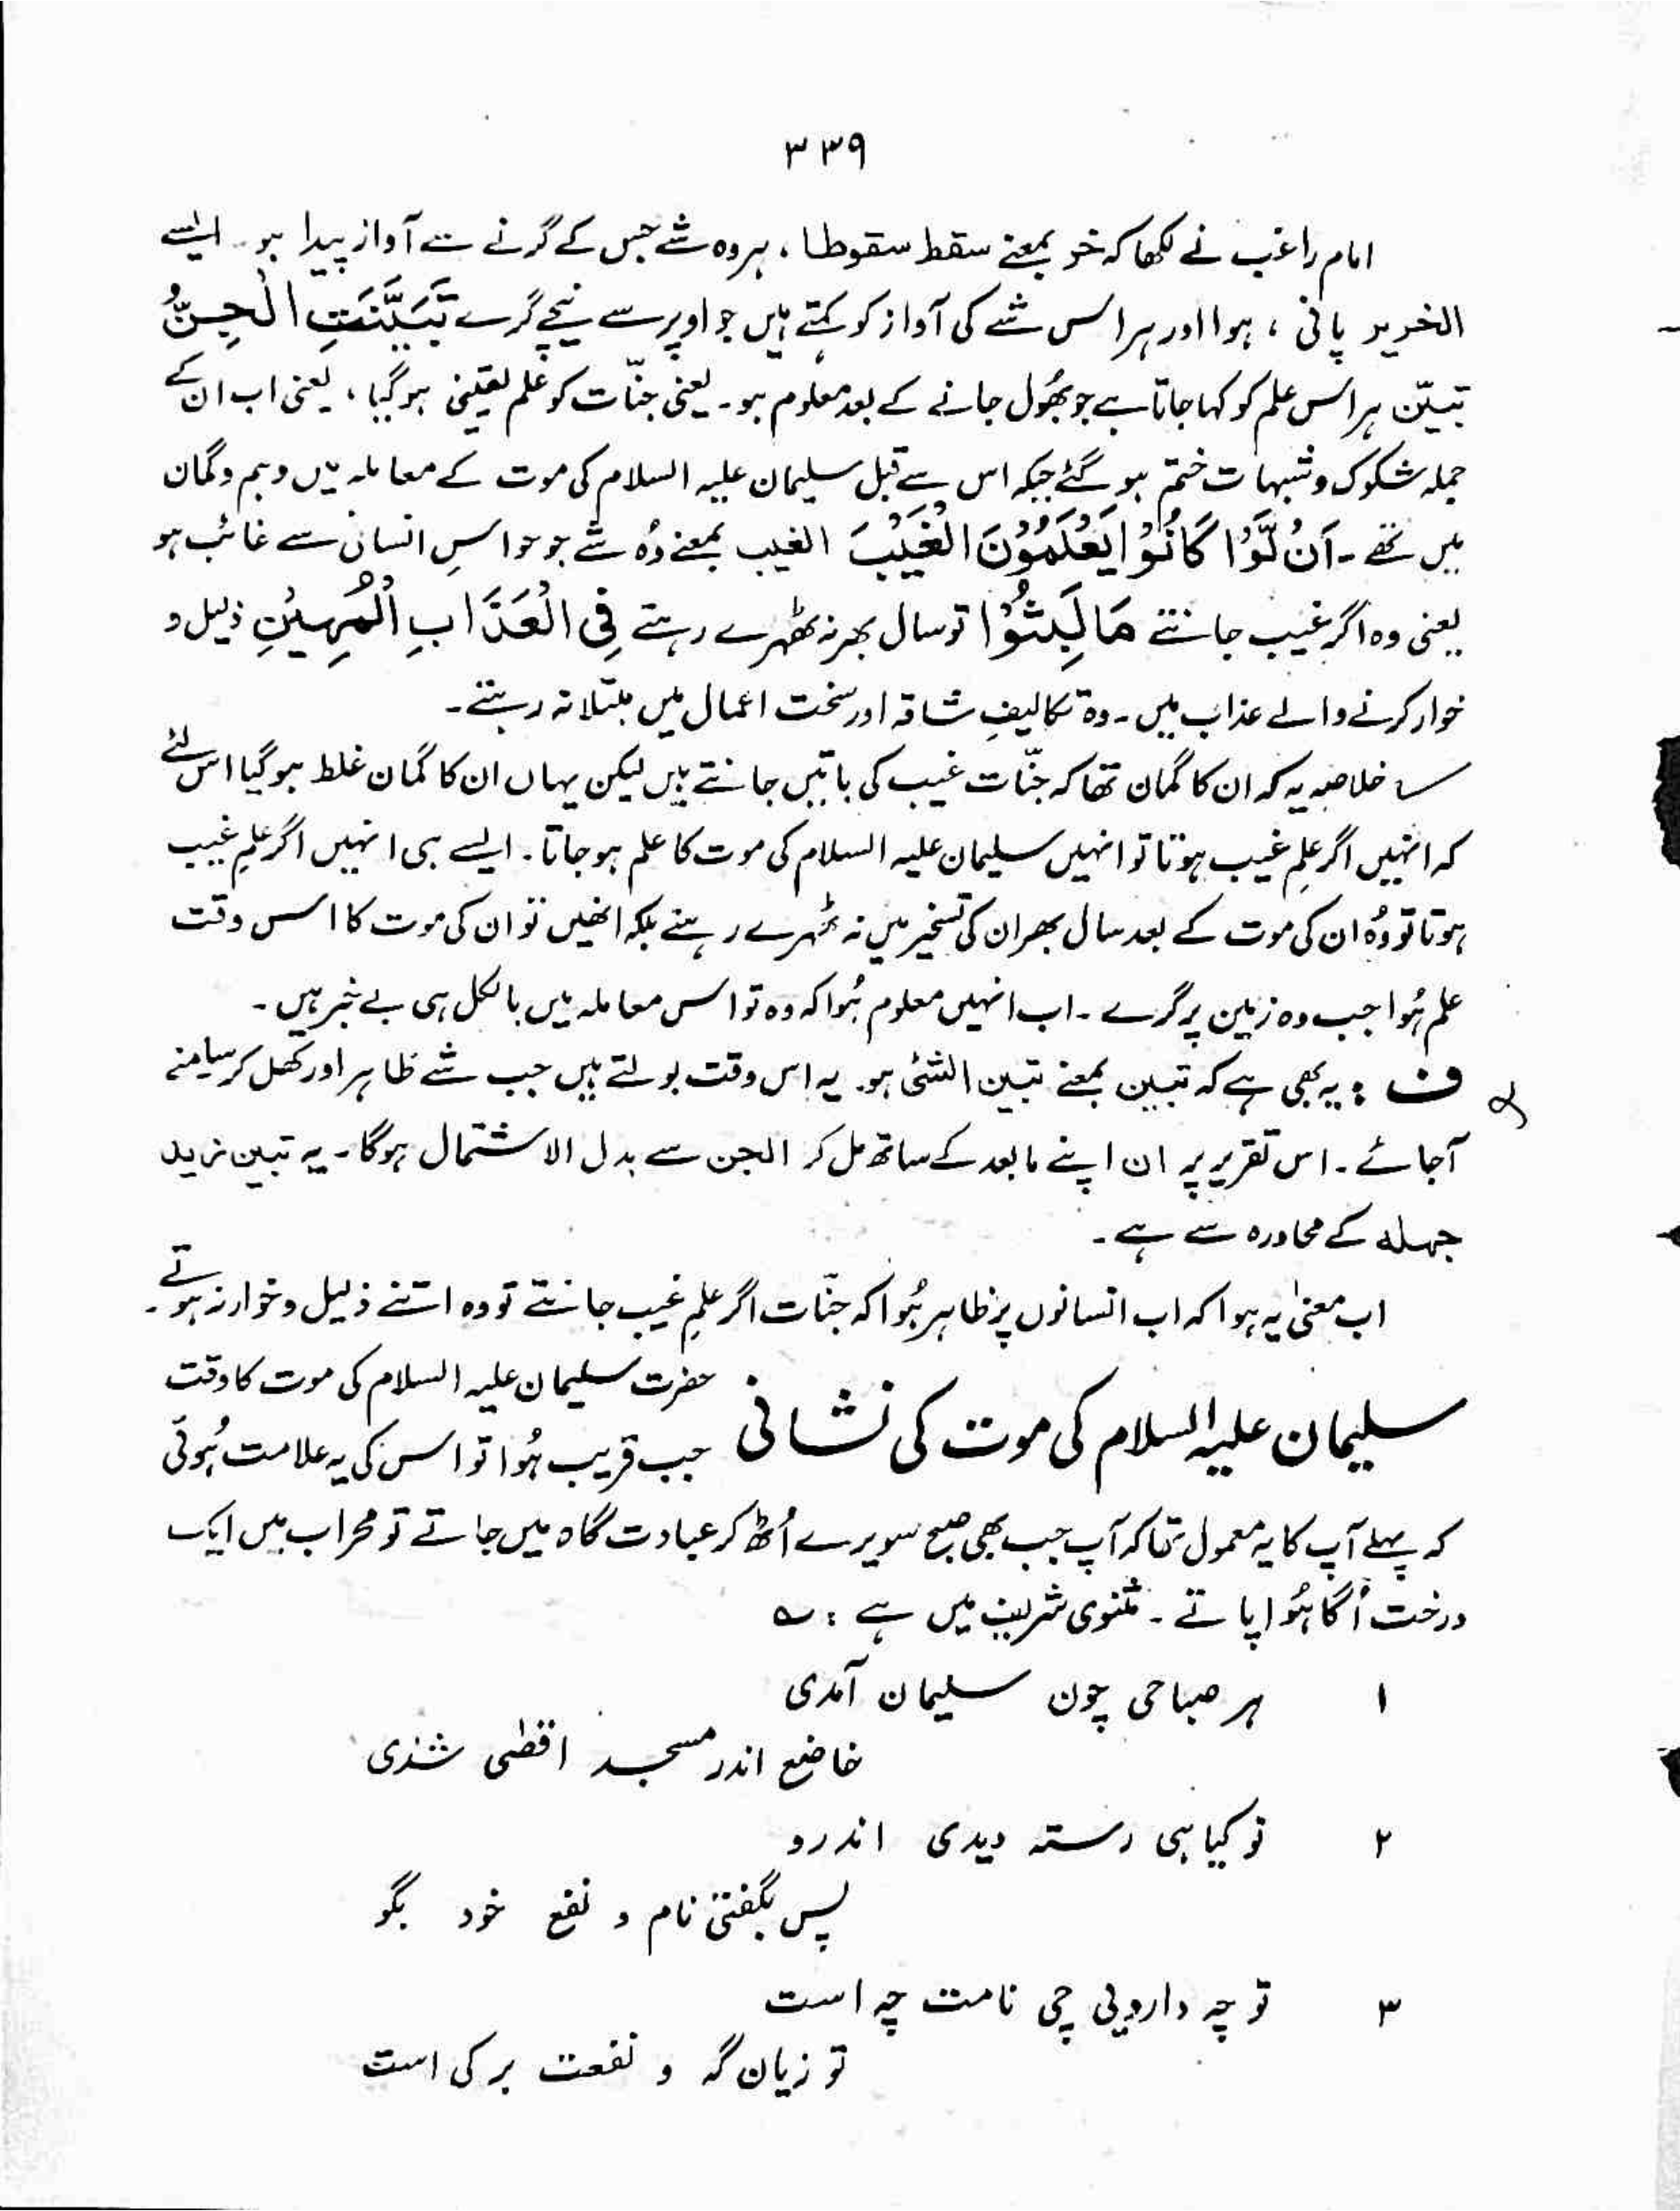 ۳۳۹
امام راغب نے لکھا کہ خر بمعنے سقط سقوطا ، ہر وہ شے جس کے گرنے سے آواز پیدا ہو ۔ ایسے
الخریر پانی ، ہوا اور ہر اس شے کی آواز کو کہتے ہیں جو اوپر سے نیچے گرے تَبَيَّنَتِ الْجِنُّ
تبیّن ہر اس علم کو کہا جاتا ہے جو بھُول جانے کے بعد معلوم ہو ۔ یعنی جنّات کو علم یقینی ہو گیا ، یعنی اب ان کے
جملہ شکوک و شبہات ختم ہو گئے جبکہ اس سے قبل سلیمان علیہ السلام کی موت کے معاملہ میں وہم و گمان
میں تھے ۔ اَنْ لَّوْ كَانُوْا يَعْلَمُوْنَ الْغَيْبَ الغیب بمعنے وُہ شے جو حواسِ انسان سے غائب ہو
یعنی وہ اگر غیب جانتے مَا لَبِثُوْا تو سال بھر نہ ٹھہرے رہتے فِي الْعَذَابِ الْمُهِيْنِ ذلیل و
خوار کرنے والے عذاب میں ۔ وہ تکالیفِ شاقہ اور سخت اعمال میں مبتلا نہ رہتے ۔
خلاصہ یہ کہ ان کا گمان تھا کہ جنّات غیب کی باتیں جانتے ہیں لیکن یہاں ان کا گمان غلط ہو گیا اس لئے
کہ انہیں اگر علمِ غیب ہوتا تو انہیں سلیمان علیہ السلام کی موت کا علم ہو جاتا ۔ ایسے ہی انہیں اگر علمِ غیب
ہوتا تو وُہ ان کی موت کے بعد سال بھر ان کی تسخیر میں نہ ٹھہرے رہتے بلکہ انھیں تو ان کی موت کا اس وقت
علم ہُوا جب وہ زمین پر گرے ۔ اب انہیں معلوم ہُوا کہ وہ تو اس معاملہ میں بالکل ہی بے خبر ہیں ۔
ف : یہ بھی ہے کہ تبین بمعنے تبین الشئی ہو ۔ یہ اس وقت بولتے ہیں جب شے ظاہر اور کھل کر سامنے
آجائے ۔ اس تقریر پر ان اپنے مابعد کے ساتھ مل کر الجن سے بدل الاشتمال ہوگا ۔ یہ تبین زید
جہلہ کے محاورہ سے ہے ۔
اب معنیٰ یہ ہوا کہ اب انسانوں پر ظاہر ہُوا کہ جنّات اگر علمِ غیب جانتے تو وہ اتنے ذلیل و خوار نہ ہوتے ۔
سلیمان علیہ السلام کی موت کی نشانی حضرت سلیمان علیہ السلام کی موت کا وقت
جب قریب ہُوا تو اس کی یہ علامت ہُوئی
کہ پہلے آپ کا یہ معمول تھا کہ آپ جب بھی صبح سویرے اُٹھ کر عبادت گاہ میں جاتے تو محراب میں ایک
درخت اُگا ہُوا پاتے ۔ مثنوی شریف میں ہے : ؎
۱ ہر صباحی چون سلیمان آمدی
خاضع اندر مسجد اقصٰی شدی
۲ نو گیاہی رستہ دیدی اندرو
پس بگفتی نام و نفع خود بگو
۳ تو چہ دارویی چی نامت چہ است
تو زیان گہ و نفعت بر کی است